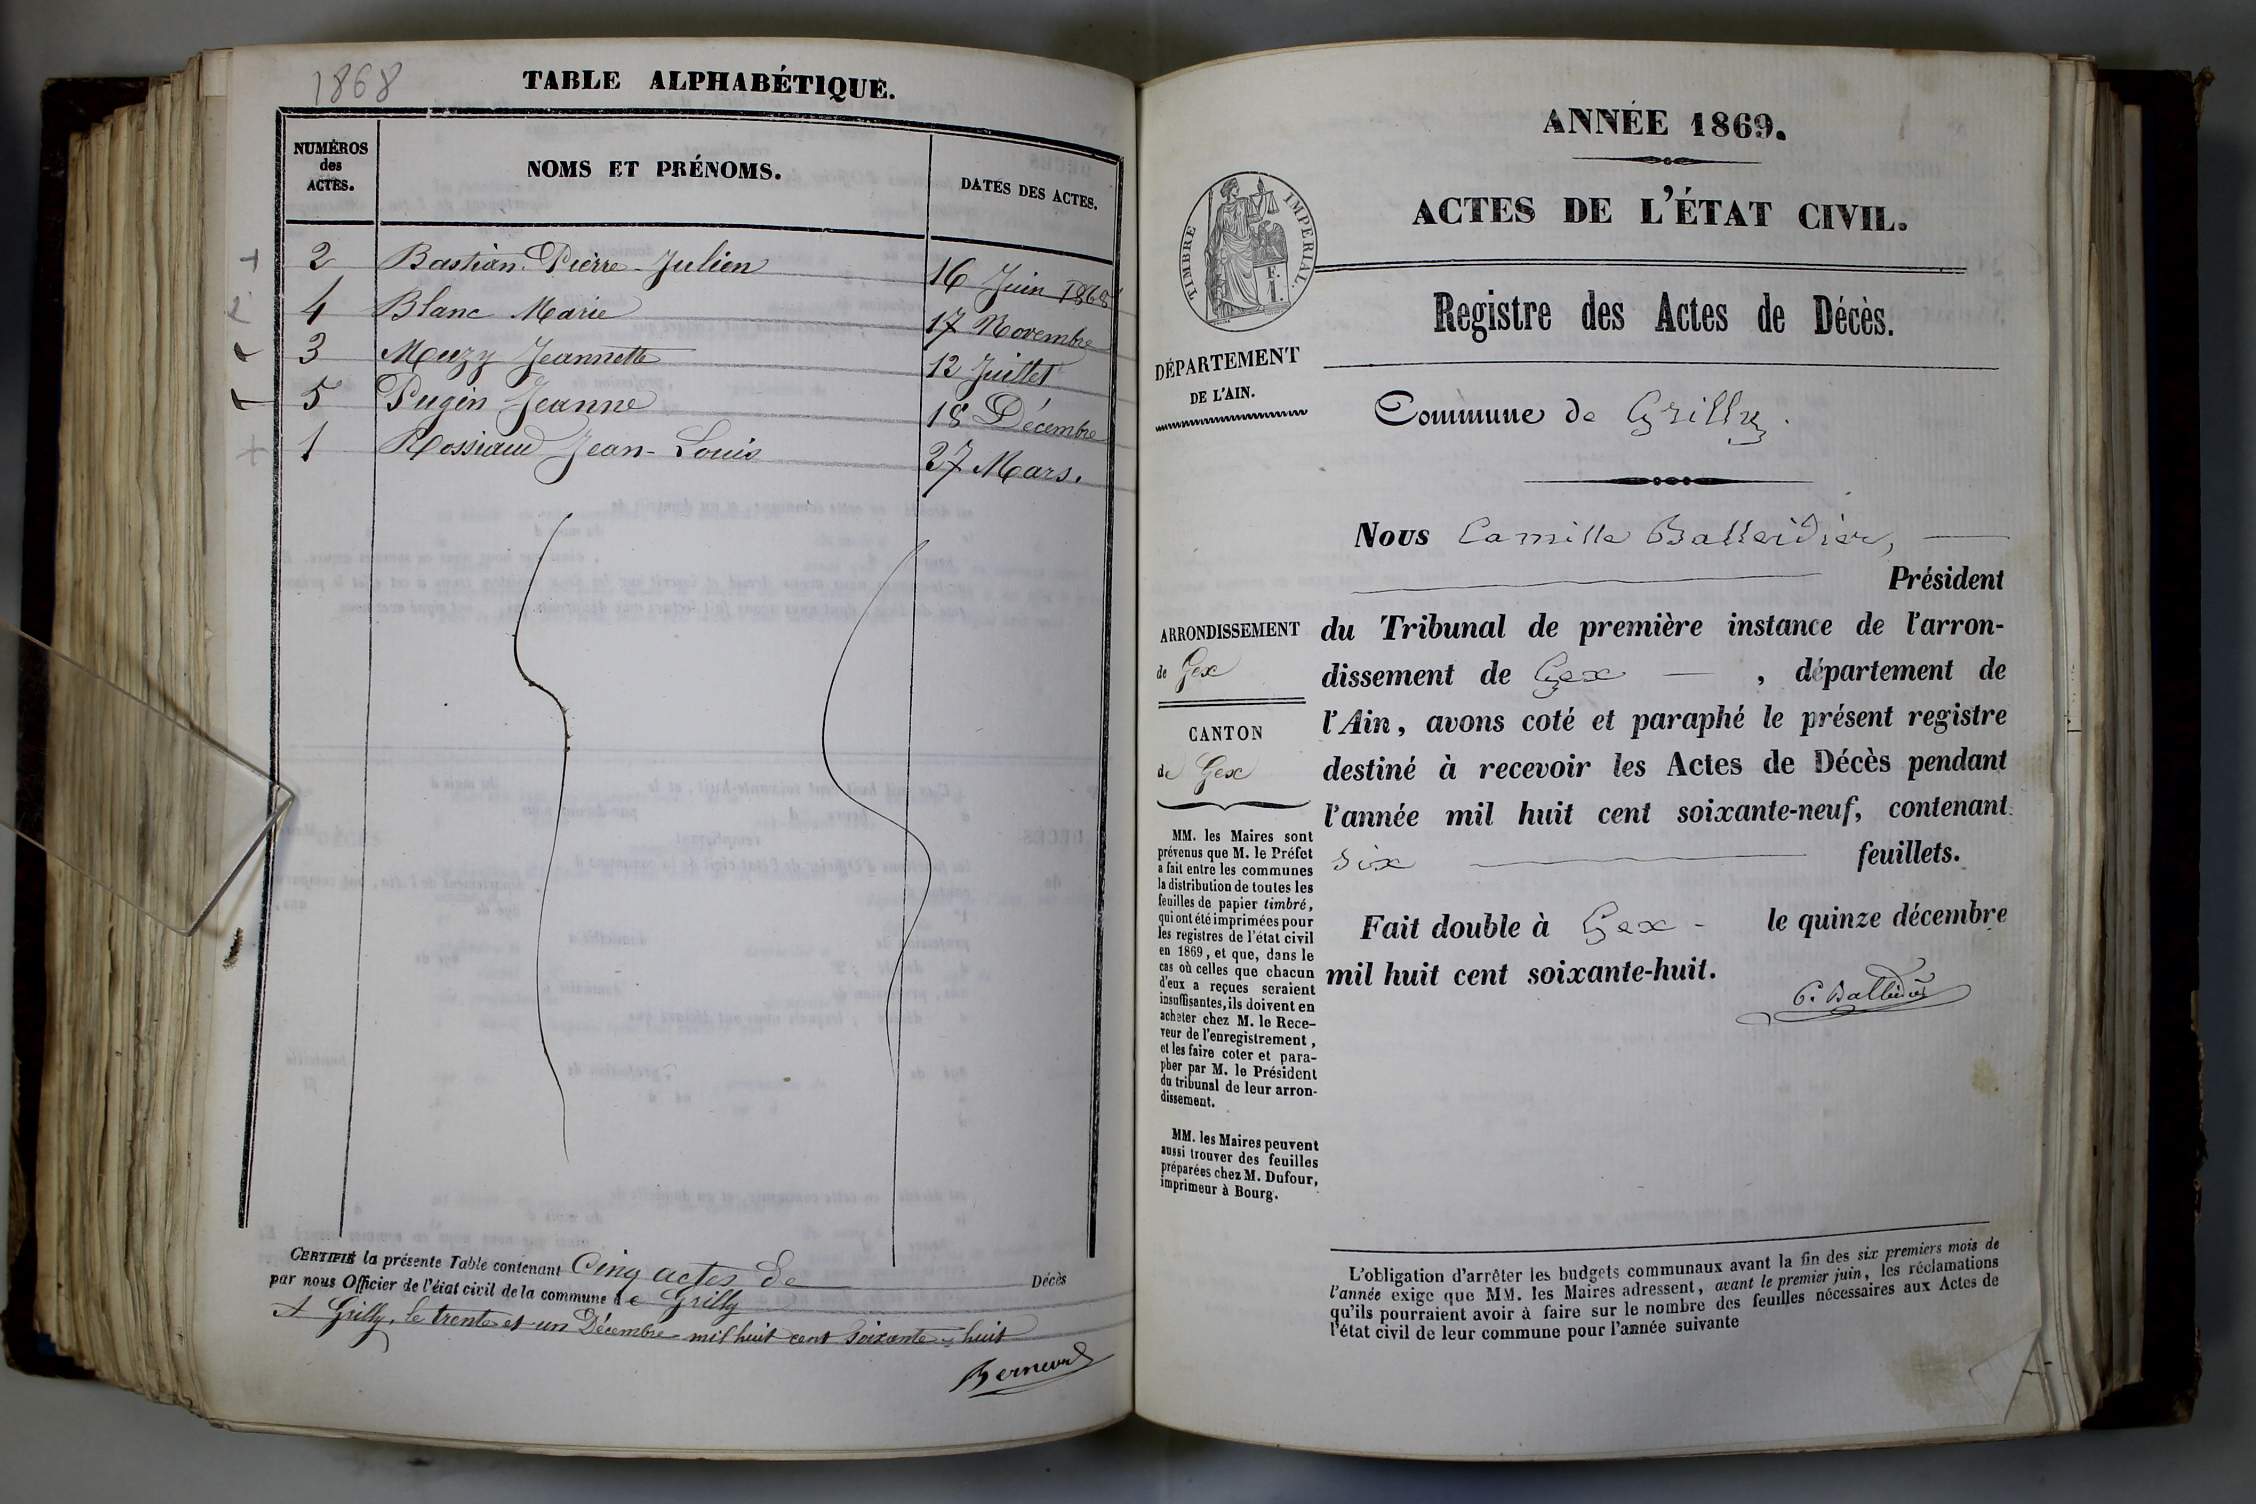 1868
TABLE ALPHABÉTIQUE.
NUMÉROS
des
ACTES.
NOMS ET PRÉNOMS.
DATES DES ACTES.
2 Bastian Pierre-Julien 16 Juin 1868
4 Blanc Marie 17 Novembre
3 Mouzy Jeannette 12 Juillet
5 Pugin Jeanne 18 Décembre
1 Rossiaud Jean-Louis 27 Mars.
CERTIFIÉ la présente Table contenant Cinq actes de Décès
par nous Officier de l'état civil de la commune de Grilly
A Grilly, le trente et un Décembre mil huit cent soixante-huit
ANNÉE 1869.
ACTES DE L'ÉTAT CIVIL.
TIMBRE IMPÉRIAL.
Registre des Actes de Décès.
DÉPARTEMENT
DE L'AIN.
Commune de Grilly.
Nous Camille Balleidier,
Président
du Tribunal de première instance de l'arron-
dissement de Gex, département de
l'Ain, avons coté et paraphé le présent registre
destiné à recevoir les Actes de Décès pendant
l'année mil huit cent soixante-neuf, contenant
six feuillets.
Fait double à Gex - le quinze décembre
mil huit cent soixante-huit.
C. Balleidier
ARRONDISSEMENT
de Gex
CANTON
de Gex
MM. les Maires sont
prévenus que M. le Préfet
a fait entre les communes
la distribution de toutes les
feuilles de papier timbré,
qui ont été imprimées pour
les registres de l'état civil
en 1869, et que, dans le
cas où celles que chacun
d'eux a reçues seraient
insuffisantes, ils doivent en
acheter chez M. le Rece-
veur de l'enregistrement,
et les faire coter et para-
pher par M. le Président
du tribunal de leur arron-
dissement.
MM. les Maires peuvent
aussi trouver des feuilles
préparées chez M. Dufour,
imprimeur à Bourg.
L'obligation d'arrêter les budgets communaux avant la fin des six premiers mois de
l'année exige que MM. les Maires adressent, avant le premier juin, les réclamations
qu'ils pourraient avoir à faire sur le nombre des feuilles nécessaires aux Actes de
l'état civil de leur commune pour l'année suivante